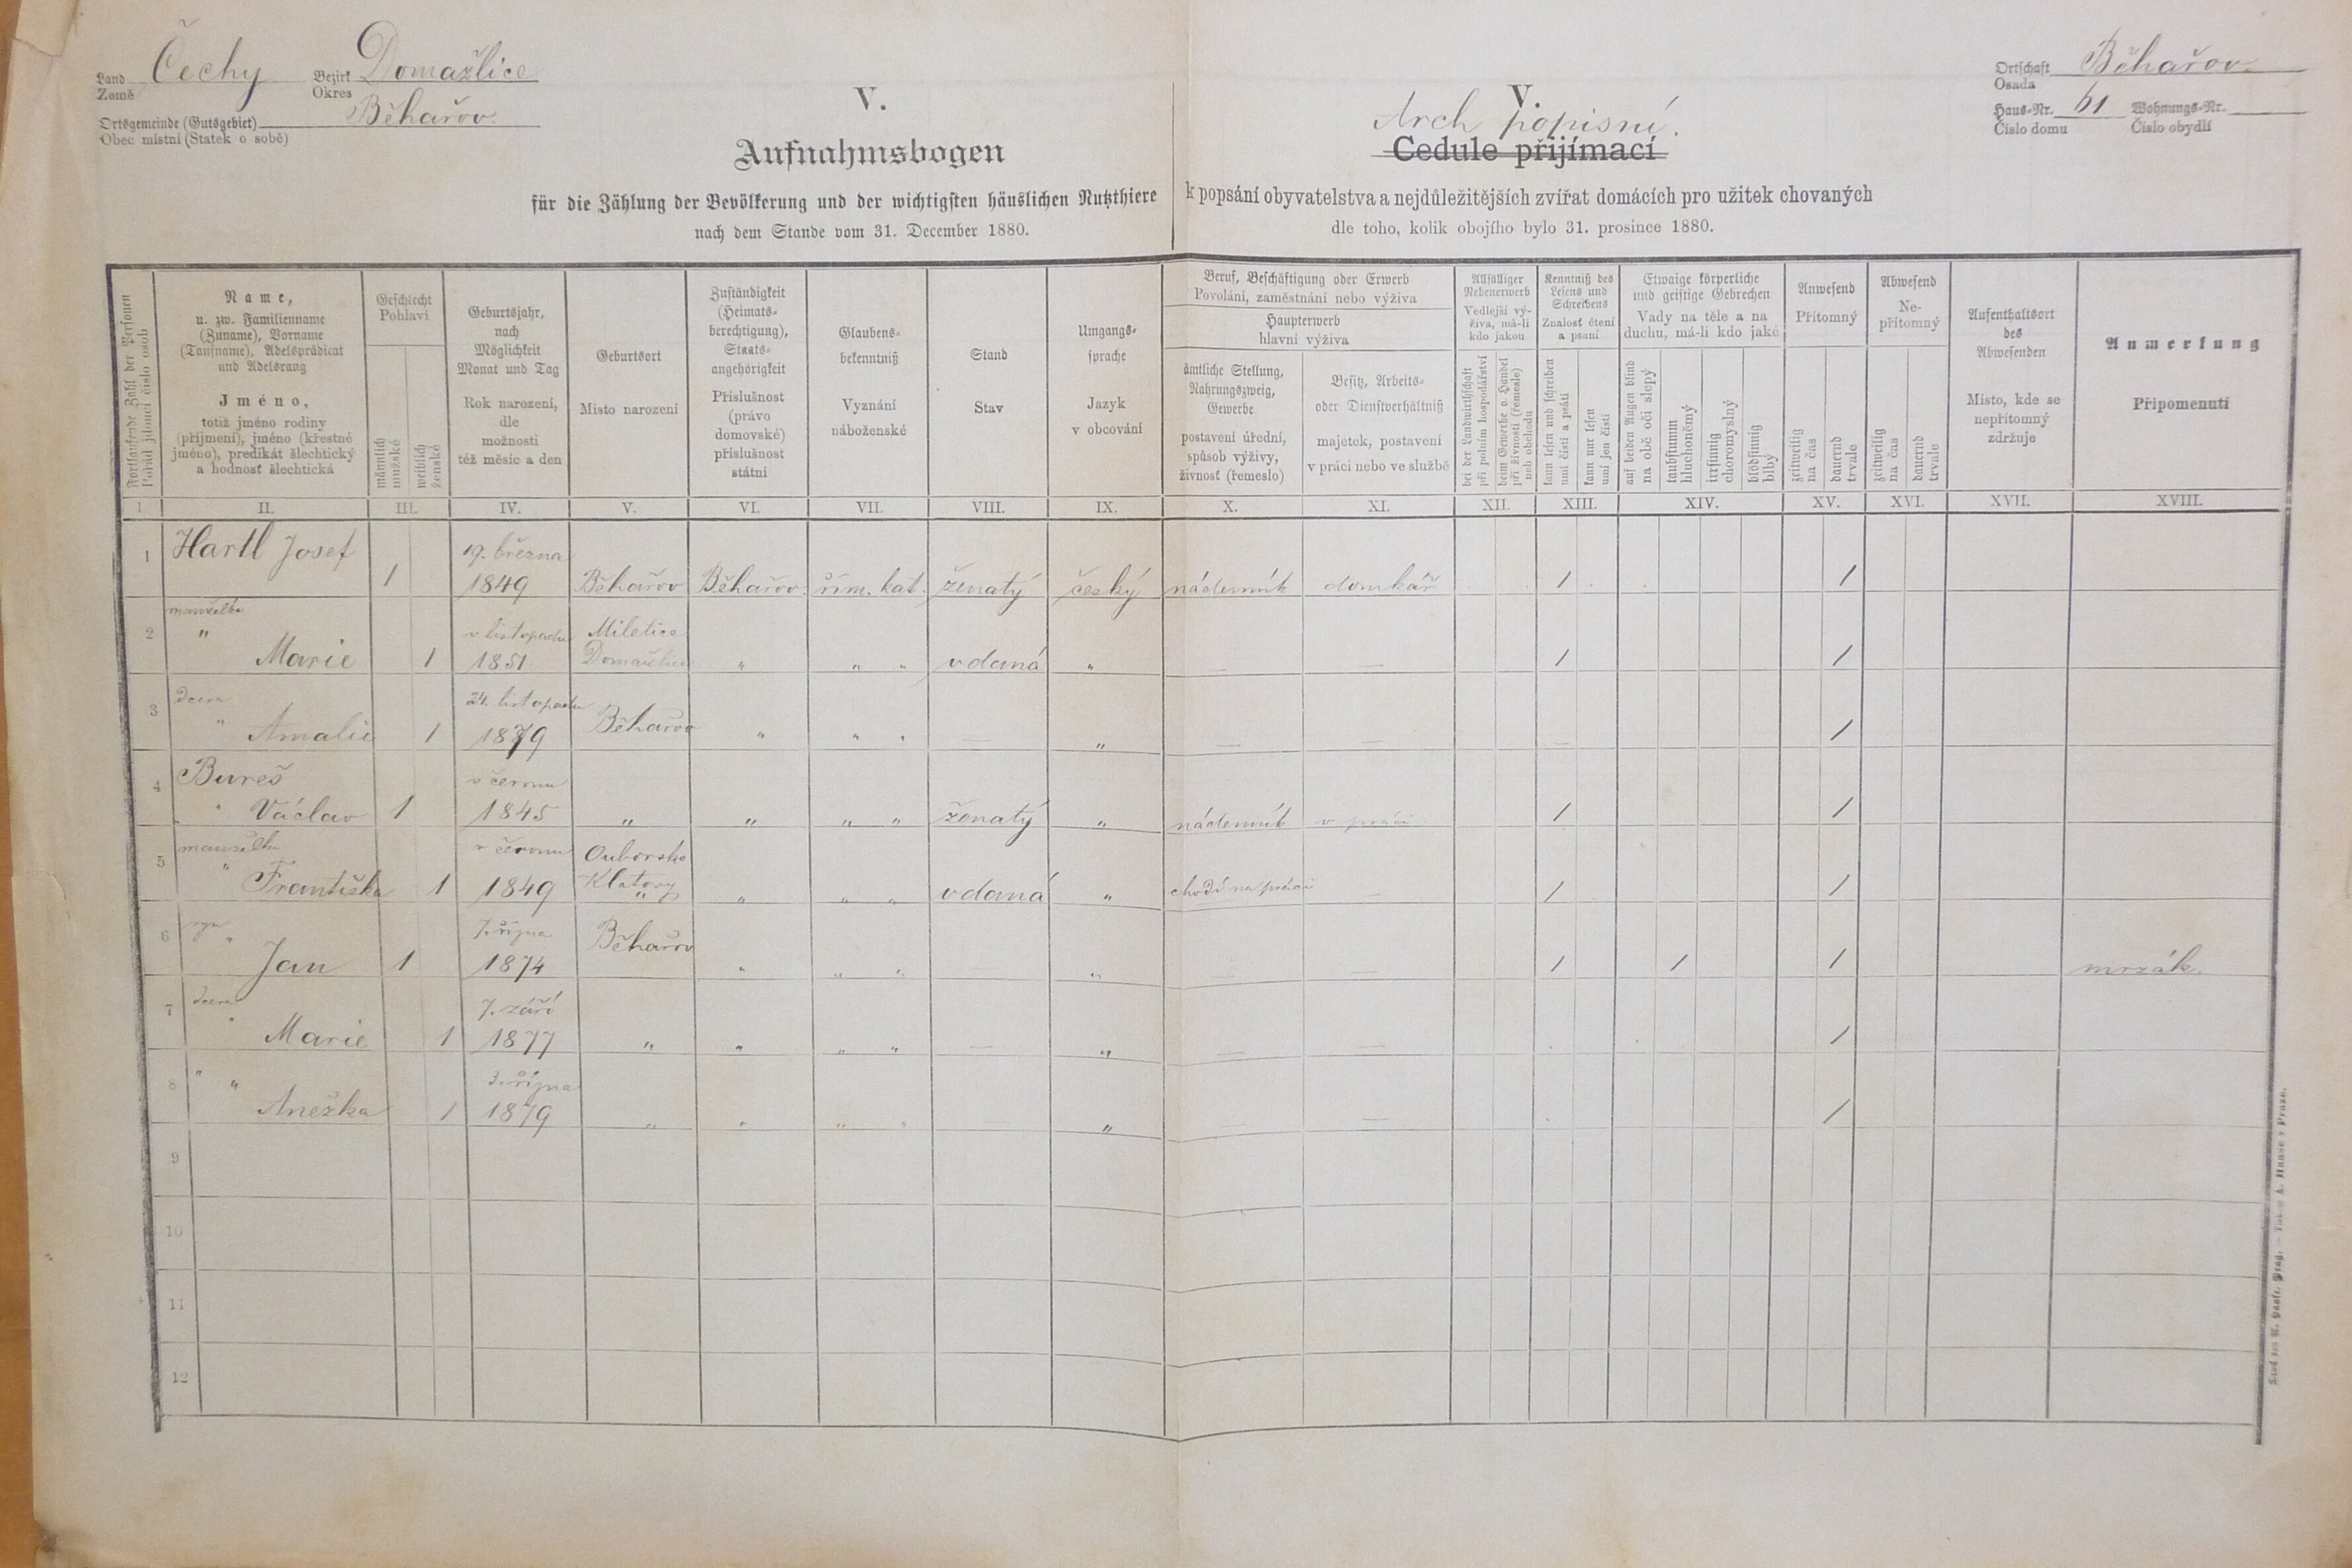 Land Čechy Bezirk Domažlice
Země Okres
Ortsgemeinde (Gutsgebiet) Běhařov
Obec místní (Statek o sobě)
V.
Aufnahmsbogen
für die Zählung der Bevölkerung und der wichtigsten häuslichen Nutzthiere
nach dem Stande vom 31. December 1880.
V.
Arch popisní.
Cedule přijímací
k popsání obyvatelstva a nejdůležitějších zvířat domácích pro užitek chovaných
dle toho, kolik obojího bylo 31. prosince 1880.
Ortschaft Běhařov
Osada
Haus-Nr. 61 Wohnungs-Nr.
Číslo domu Číslo obydlí
Fortlaufende Zahl der Personen
Pořád jdoucí číslo osob
Name,
u. zw. Familienname
(Zuname), Vorname
(Taufname), Adelsprädicat
und Adelsrang
Jméno,
totiž jméno rodiny
(příjmení), jméno (křestné
jméno), predikát šlechtický
a hodnost šlechtická
Geschlecht
Pohlaví
männlich
mužské
weiblich
ženské
Geburtsjahr,
nach
Möglichkeit
Monat und Tag
Rok narození,
dle
možnosti
též měsíc a den
Geburtsort
Místo narození
Zuständigkeit
(Heimats-
berechtigung),
Staats-
angehörigkeit
Příslušnost
(právo
domovské)
příslušnost
státní
Glaubens-
bekenntniß
Vyznání
náboženské
Stand
Stav
Umgangs-
sprache
Jazyk
v obcování
Beruf, Beschäftigung oder Erwerb
Povolání, zaměstnání nebo výživa
Haupterwerb
hlavní výživa
ämtliche Stellung,
Nahrungszweig,
Gewerbe
postavení úřední,
spůsob výživy,
živnost (řemeslo)
Besitz, Arbeits-
oder Dienstverhältniß
majetek, postavení
v práci nebo ve službě
Allfälliger
Nebenerwerb
Vedlejší vý-
živa, má-li
kdo jakou
bei der Landwirthschaft
při polním hospodářství
beim Gewerbe o. Handel
při živnosti (řemesle)
neb obchodu
Kenntniß des
Lesens und
Schreibens
Znalost čtení
a psaní
kann lesen und schreiben
umí čísti a psáti
kann nur lesen
umí jen čísti
Etwaige körperliche
und geistige Gebrechen
Vady na těle a na
duchu, má-li kdo jaké
auf beiden Augen blind
na obě oči slepý
taubstumm
hluchoněmý
irrsinnig
choromyslný
blödsinnig
blbý
Anwesend
Přítomný
zeitweilig
na čas
dauernd
trvale
Abwesend
Ne-
přítomný
zeitweilig
na čas
dauernd
trvale
Aufenthaltsort
des
Abwesenden
Místo, kde se
nepřítomný
zdržuje
Anmerkung
Připomenutí
I II. III. IV. V. VI. VII. VIII. IX. X. XI. XII. XIII. XIV. XV. XVI. XVII. XVIII.
19. března
1 Hartl Josef 1 1849 Běhařov Běhařov řím. kat. ženatý český nádenník domkář / /
manželka v listopadu Miletice
2 " Marie 1 1851 Domažlice " " " vdaná " — — / /
dcera 24. listopadu
3 " Amalie 1 1879 Běhařov " " " — " — — — /
Bureš v červnu
4 " Václav 1 1845 " " " " ženatý " nádenník v práci / /
manželka v červnu Ouborsko
5 " Františka 1 1849 Klatovy " " " " vdaná " chodí na práci — / /
syn 7. října
6 " Jan 1 1874 Běhařov " " " " — / / / mrzák.
dcera 7. září
7 " Marie 1 1877 " " " " — " — — /
" " 3. října
8 Anežka 1 1879 " " " " — " — — /
9
10
11
12